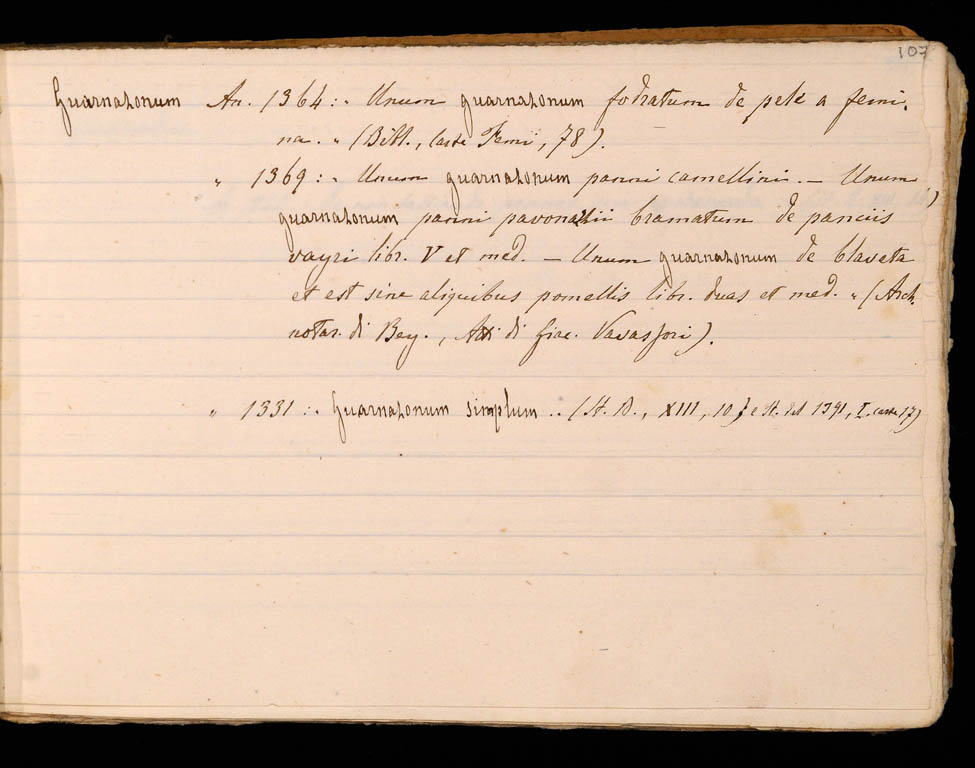 107
Guarnazonum An. 1364: „ Unum guarnazonum fodratum de pele a femi-
na. „ (Bibl., Carte Femi, 78).
„ 1369: „ Unum guarnazonum panni camellini. — Unum
guarnazonum panni pavonazii bramatum de panciis
vayri libr. V et med. — Unum guarnazonum de blaveta
et est sine aliquibus pomellis libr. duas et med. „ (Arch.
notar. di Berg., Atti di Giac. Vavassori).
„ 1331: „ Guarnazonum simplum „ (St. B., XIII, 10; e St. del 1391, I. carte 17)